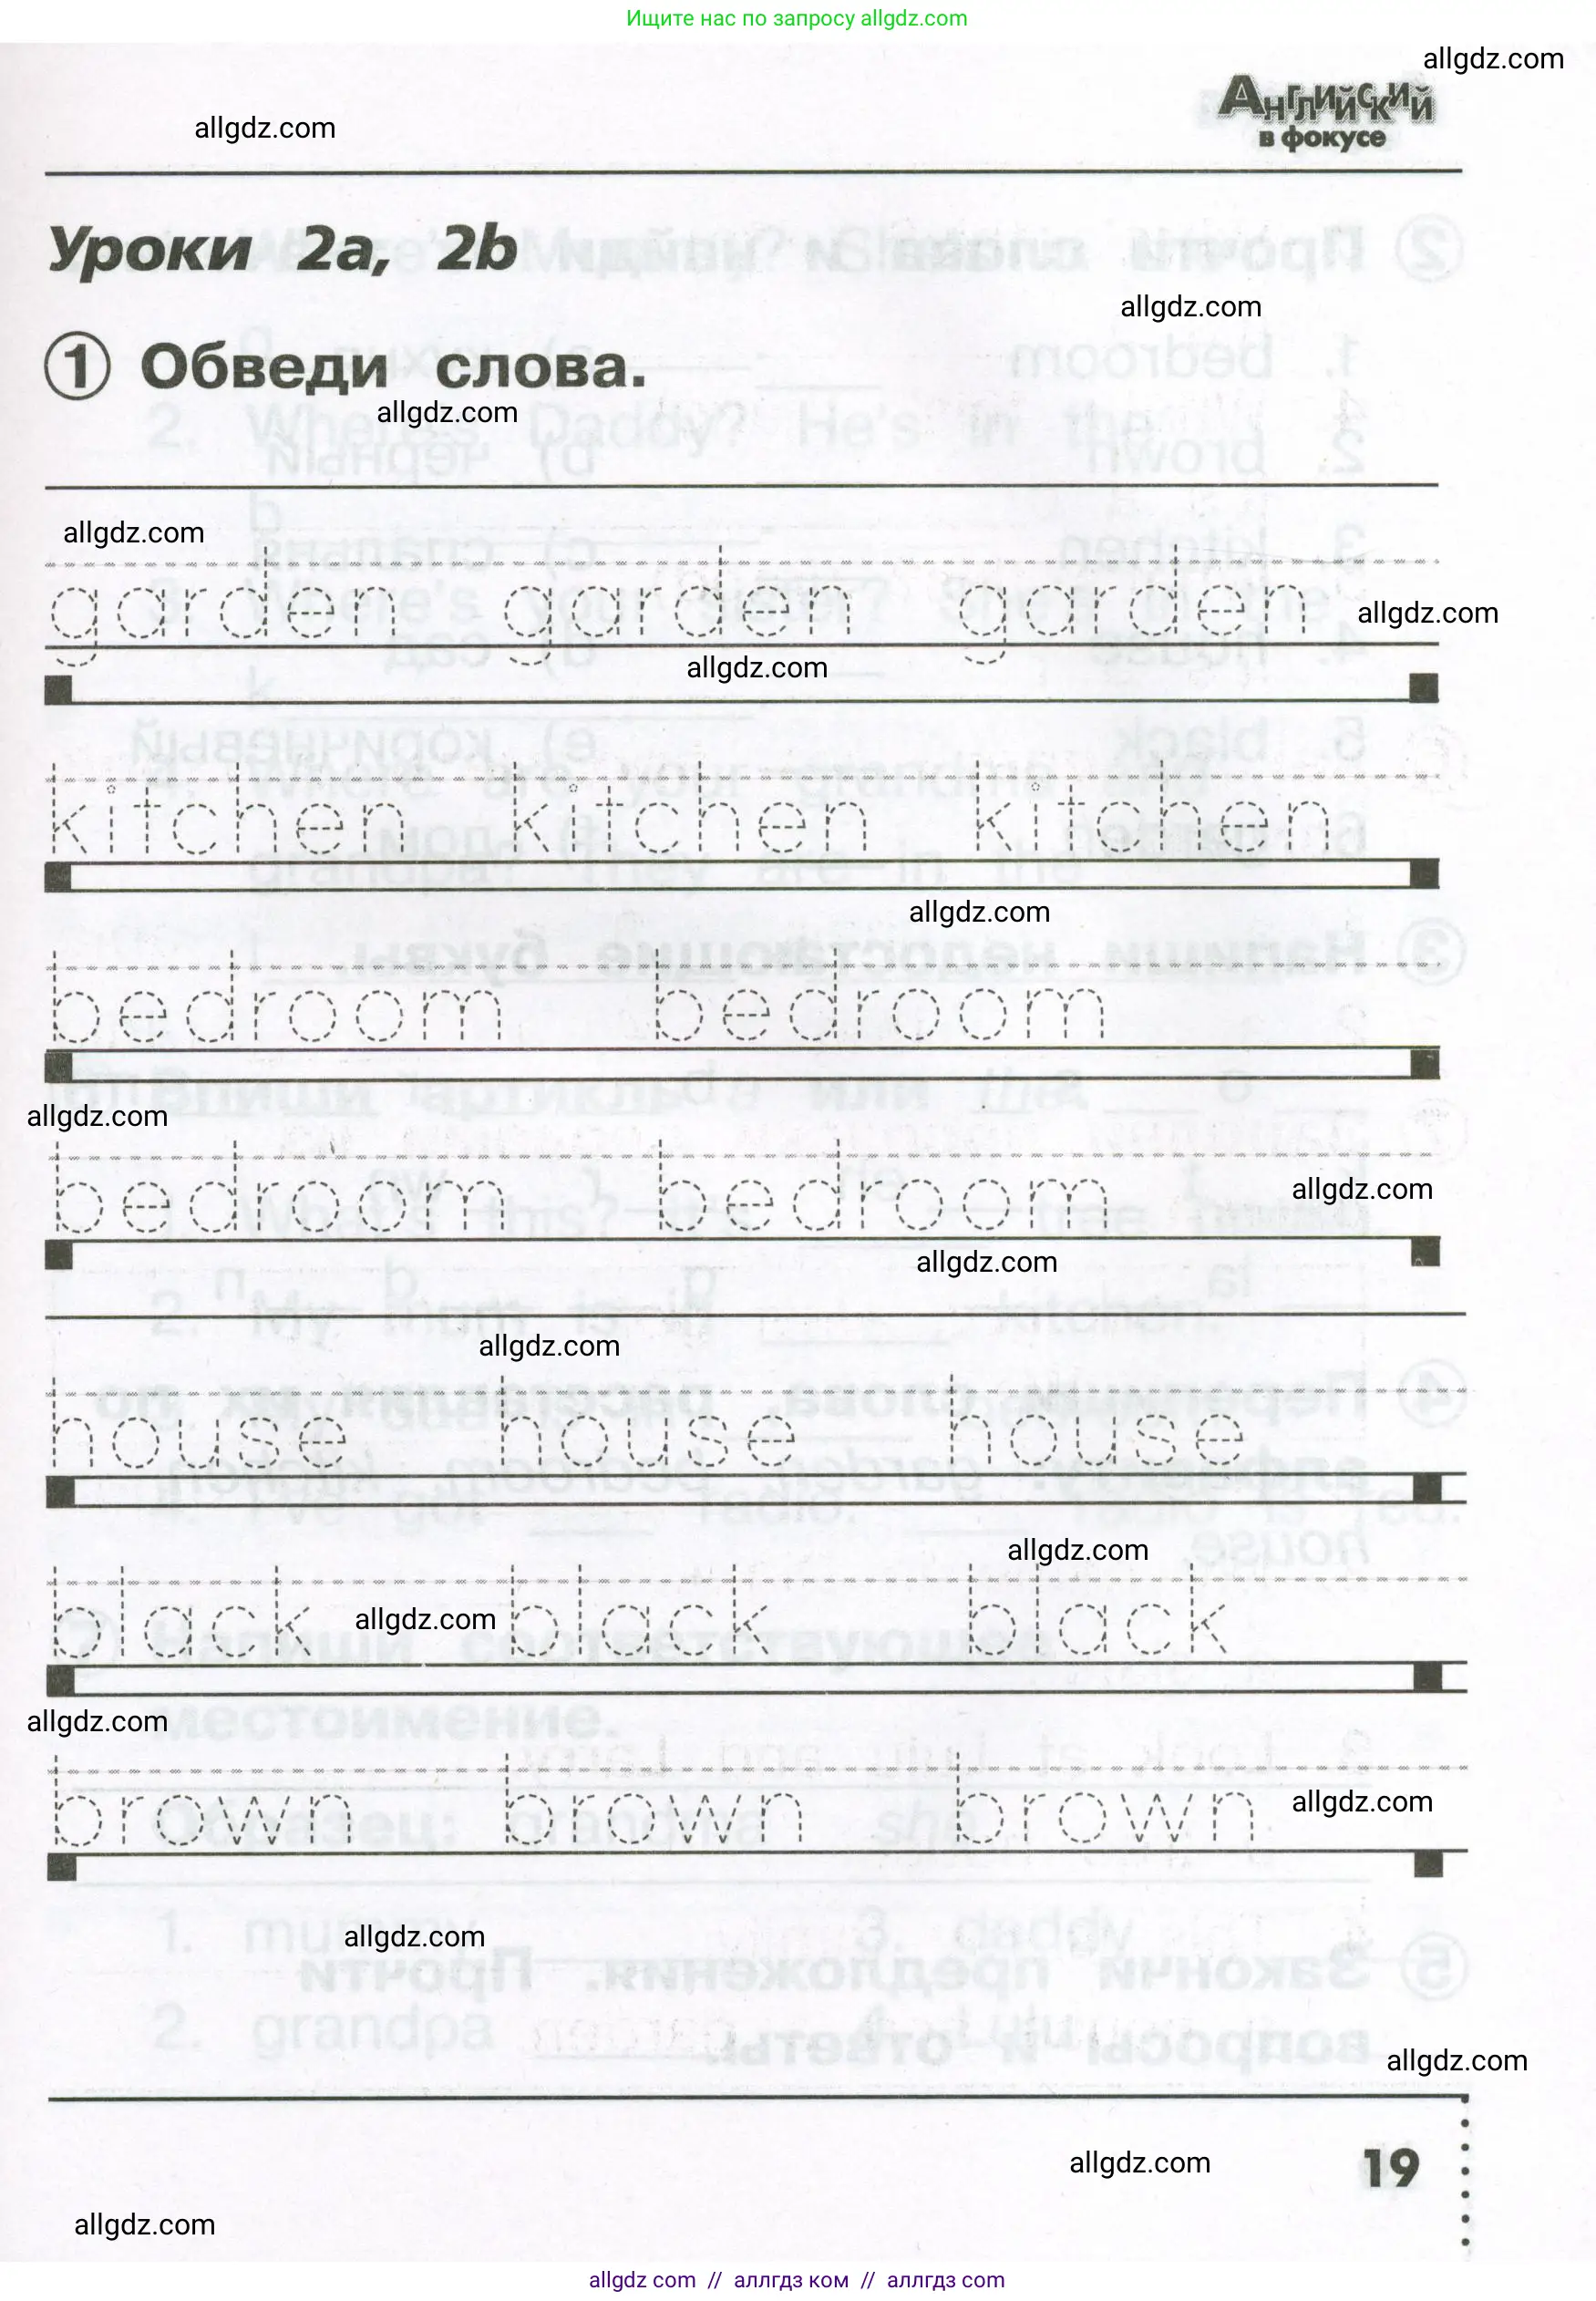 Ищите нас по запросу allgdz.com
allgdz.com
Английский
в фокусе
allgdz.com
Уроки 2a, 2b
allgdz.com
1 Обведи слова.
allgdz.com
allgdz.com
garden garden garden
allgdz.com
allgdz.com
kitchen kitchen kitchen
allgdz.com
bedroom bedroom
allgdz.com
bedroom bedroom
allgdz.com
allgdz.com
allgdz.com
house house house
allgdz.com
black black black
allgdz.com
allgdz.com
brown brown brown
allgdz.com
allgdz.com
allgdz.com
allgdz.com
19
allgdz.com
allgdz com // аллгдз ком // аллгдз com